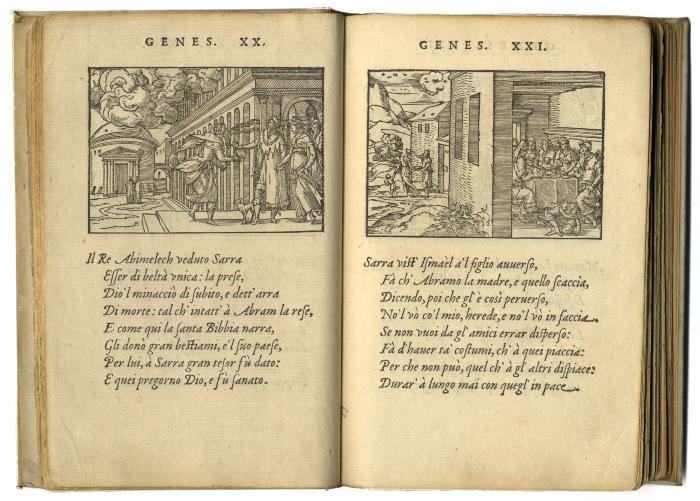 GENES. XX.
Il Re Abimelech veduto Sarra
Eſſer di beltà vnica: la preſe,
Dio'l minacciò di ſubito, e dett' arra
Di morte: tal ch'intatt' à Abram la reſe,
E come qui la ſanta Bibbia narra,
Gli donò gran beſtiami, e'l ſuo paeſe,
Per lui, à Sarra gran teſor fù dato:
E quei pregorno Dio, e fù ſanato.
GENES. XXI.
Sarra viſt' Iſmaèl a'l figlio auuerſo,
Fà ch' Abramo la madre, e quello ſcaccia,
Dicendo, poi che gl'è così peruerſo,
No'l vò co'l mio, herede, e no'l vò in faccia.
Se non vuoi da gl'amici errar diſperſo:
Fà d'hauer ta' coſtumi, ch'à quei piaccia:
Per che non può, quel ch'à gl'altri diſpiace:
Durar' à lungo mai con quegl' in pace.